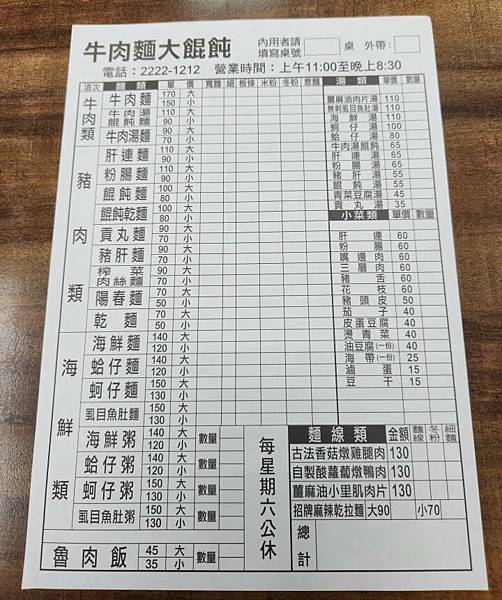 牛肉麵大餛飩 內用者請填寫桌號 桌 外帶:
電話:2222-1212 營業時間:上午11:00至晚上8:30
項次 麵類 單價 寬麵 細 板條 米粉 冬粉 意麵 湯類 單價 數量
牛肉類
牛肉麵 170 大 150 小
牛肉湯餛飩麵 110 大 90 小
牛肉湯麵 90 大 70 小
豬肉類
肝連麵 110 大 90 小
粉腸麵 110 大 90 小
餛飩麵 100 大 80 小
餛飩乾麵 100 大 80 小
貢丸麵 90 大 70 小
豬肝麵 110 大 90 小
榨菜肉絲麵 90 大 70 小
陽春麵 70 大 50 小
乾麵 70 大 50 小
海鮮類
海鮮麵 140 大 120 小
蛤仔麵 140 大 120 小
蚵仔麵 150 大 130 小
虱目魚肚麵 150 大 130 小
海鮮粥 140 大 120 小 數量
蛤仔粥 140 大 120 小 數量
蚵仔粥 150 大 130 小 數量
虱目魚肚粥 150 大 130 小 數量
魯肉飯 45 大 35 小 數量
薑麻油肉片湯 110
無刺虱目魚肚湯 110
海鮮湯 110
蚵仔湯 100
蛤仔湯 80
牛肉湯餛飩 65
肝連湯 65
粉腸湯 65
豬肝湯 55
餛飩湯 55
青菜豆腐湯 45
貢丸湯 35
小菜類 單價 數量
肝連 60
粉腸 60
嘴邊肉 60
三層肉 60
豬舌 60
花枝 60
豬頭皮 50
茄子 40
皮蛋豆腐 40
燙青菜 40
油豆腐(一份) 40
海帶(一份) 25
滷蛋 15
豆干 15
每星期六公休
麵線類 金額 麵線 冬粉 細麵
古法香菇燉雞腿肉 130
自製酸蘿蔔燉鴨肉 130
薑麻油小里肌肉片 130
招牌麻辣乾拉麵 大90 小70
總計